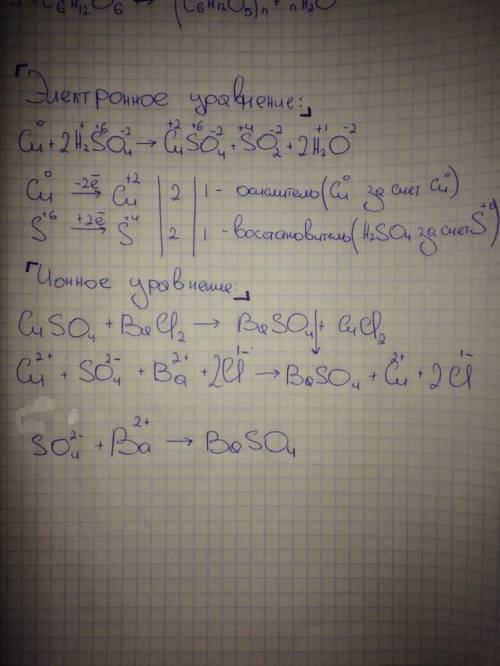 C6H12O6 → (C6H12O5)n + nH2O
「Электронное уравнение:」
Cu⁰ + 2H₂⁺S⁺⁶O₄⁻² → Cu⁺²S⁺⁶O₄⁻² + S⁺⁴O₂⁻² + 2H₂⁺¹O⁻²
Cu⁰ -2e̅→ Cu⁺² | 2 | 1 - окислитель (Cu⁰ за счёт Cu⁰)
S⁺⁶ +2e̅→ S⁺⁴ | 2 | 1 - восстановитель (H₂SO₄ за счёт S
「Ионное уравнение:」
CuSO₄ + BaCl₂ → BaSO₄↓ + CuCl₂
Cu²⁺ + SO₄²⁻ + Ba²⁺ + 2Cl¹⁻ → BaSO₄ + Cu²⁺ + 2Cl¹⁻
SO₄²⁻ + Ba²⁺ → BaSO₄